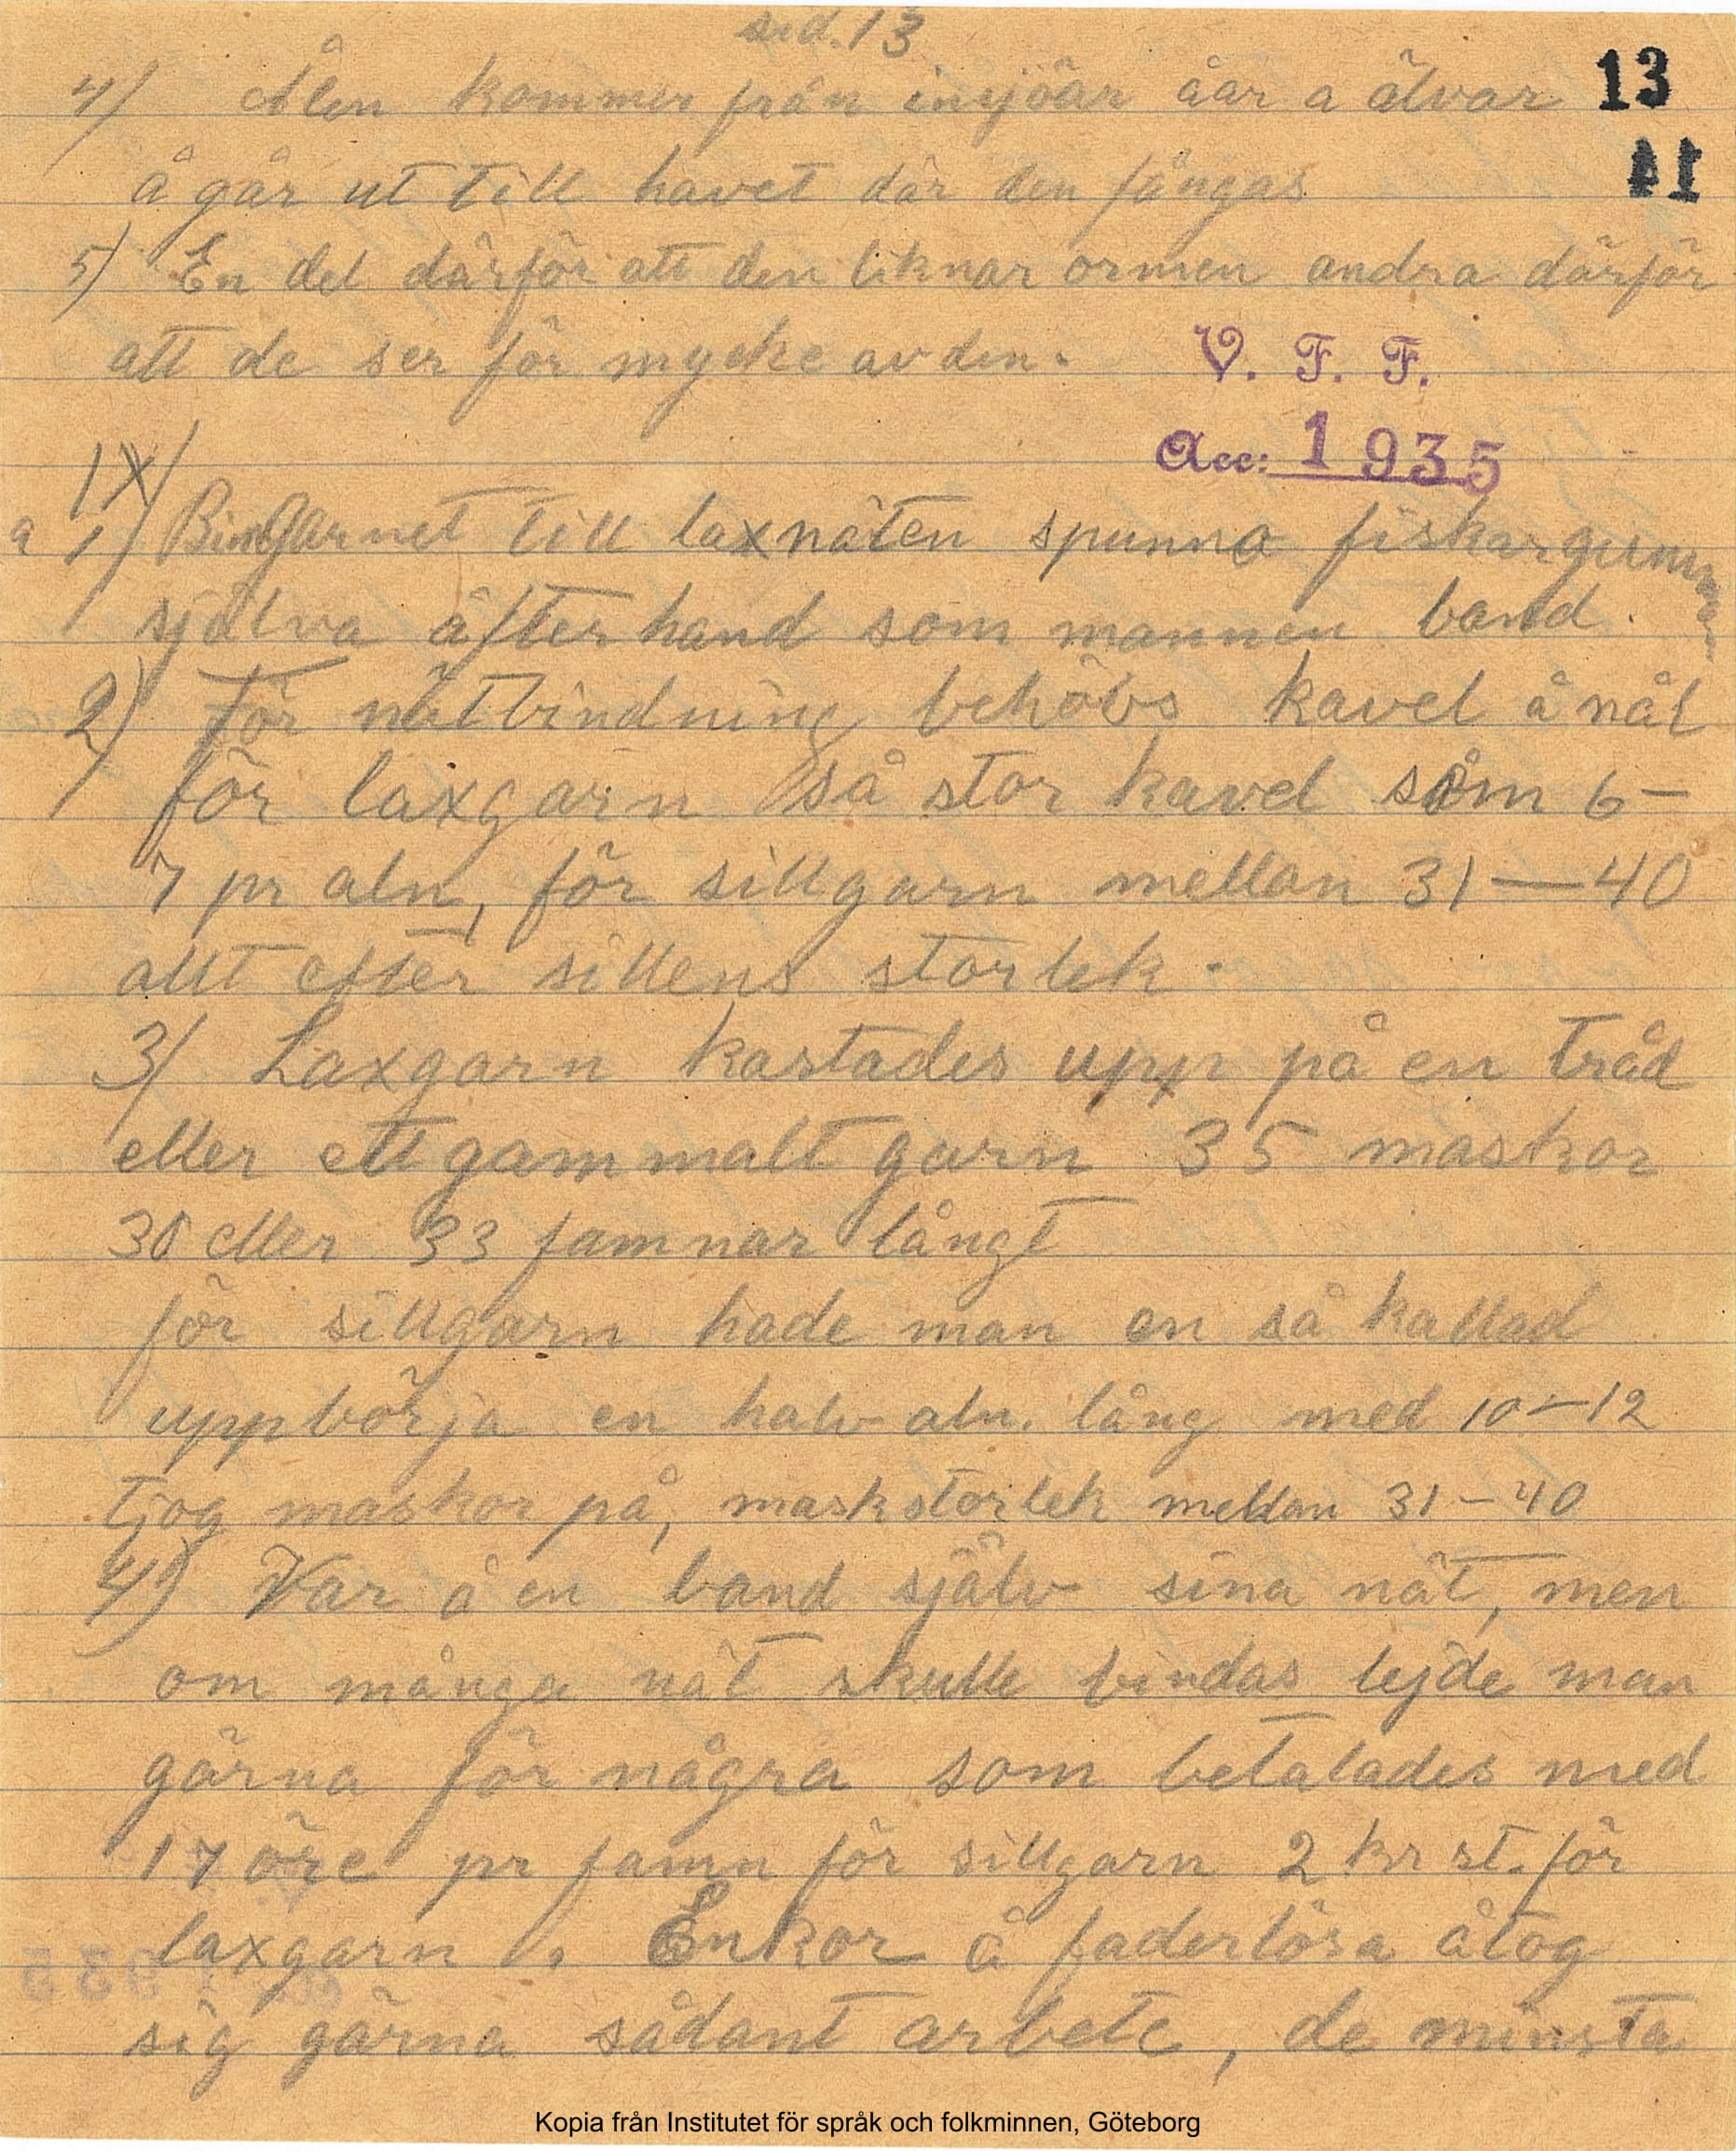 sid. 13
13
4) Ålen kommer från insjöar åar a älvar
14
å går ut till havet där den fångas
5) En del därför att den liknar ormen andra därför
att de ser för mycke av den.
V. F. F.
Acc: 1935
IX
a 1) Bindgarnet till laxnäten spunno fiskargummorna
själva äfterhand som mannen band.
2) För nätbindning behövs kavel å nål
för laxgarn så stor kavel som 6–
7 pr aln, för sillgarn mellan 31–40
allt efter sillens storlek.
3) Laxgarn kastades upp på en tråd
eller ett gammalt garn 35 maskor
30 eller 33 famnar långt
för sillgarn hade man en så kallad
uppbörja en halv aln. lång med 10–12
tjog maskor på, maskstorlek mellan 31–40
4) Var å en band själv sina nät, men
om många nät skulle bindas lejde man
gärna för några som betalades med
17 öre pr famn för sillgarn 2 kr st. för
laxgarn. Enkor å faderlösa åtog
sig gärna sådant arbete, de minsta
Kopia från Institutet för språk och folkminnen, Göteborg